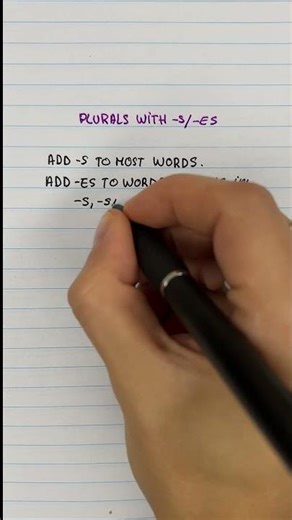 PLURALS WITH -S/-ES
ADD -S TO MOST WORDS.
ADD -ES TO WORDS
-S, -S